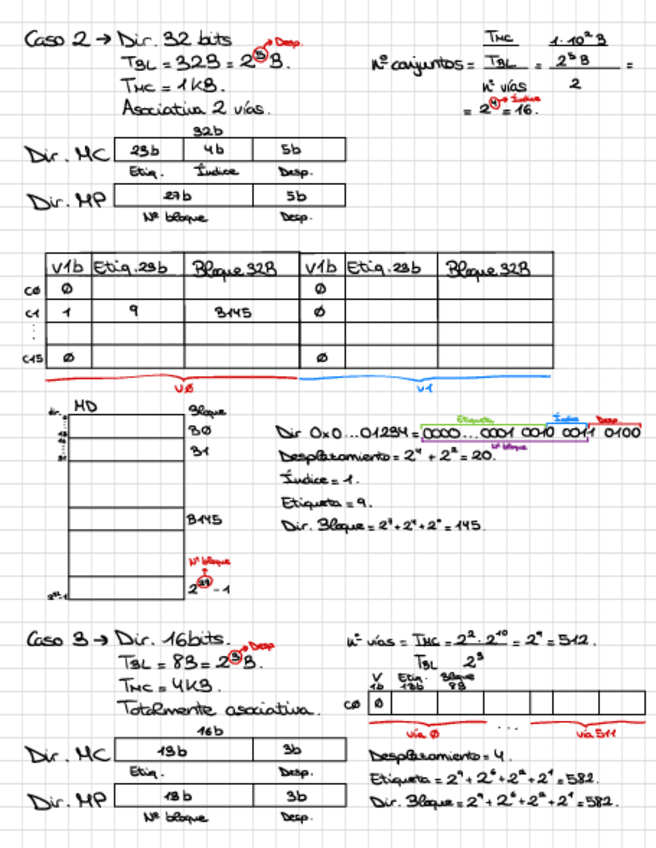 Caso 2 → Dir. 32 bits
T_BL = 32B = 2^5 B. → Desp.
T_MC = 1KB.
Asociativa 2 vías.
nº conjuntos = T_MC / T_BL / nº vías = 1·2^10 B / 2^5 B / 2 =
= 2^4 = 16. → Índice
32b
Dir. MC 23b 4b 5b
Etiq. Índice Desp.
Dir. MP 27b 5b
Nº bloque Desp.
V1b Etiq.23b Bloque 32B V1b Etiq.23b Bloque 32B
C0 0 0
C1 1 9 B145 0
⋮
C15 0 0
V0 V1
dir. MD Bloque
B0
B1
B145
Nº bloque
2^27 - 1
2^32-1
Etiqueta Índice Desp.
Dir 0x0...01234 = 0000...0001 0010 0011 0100
Nº bloque
Desplazamiento = 2^4 + 2^2 = 20.
Índice = 1.
Etiqueta = 9.
Dir. Bloque = 2^7 + 2^4 + 2^0 = 145.
Caso 3 → Dir. 16bits.
T_BL = 8B = 2^3 B. → Desp
T_MC = 4KB.
Totalmente asociativa.
nº vías = T_MC / T_BL = 2^2 · 2^10 / 2^3 = 2^9 = 512.
V 1b Etiq. 13b Bloque 8B
C0 0
vía 0 ... vía 511
16b
Dir. MC 13b 3b
Etiq. Desp.
Dir. MP 13b 3b
Nº bloque Desp.
Desplazamiento = 4.
Etiqueta = 2^9 + 2^6 + 2^2 + 2^1 = 582.
Dir. Bloque = 2^9 + 2^6 + 2^2 + 2^1 = 582.